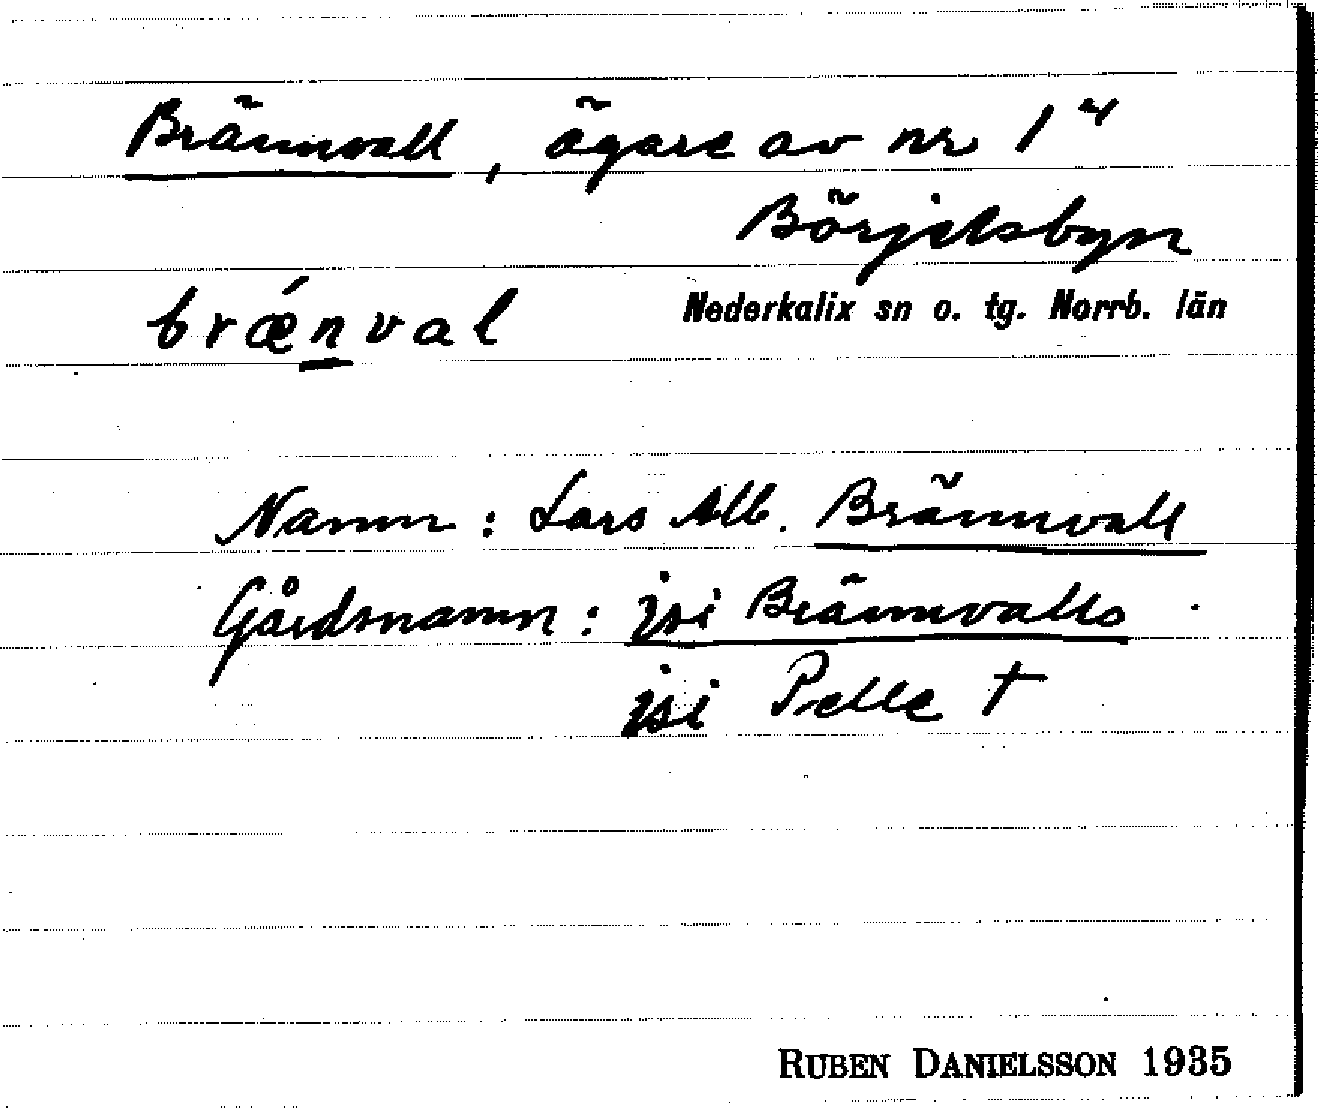 Brännvall, ägare av nr 1⁴
Börjelsbyn
brǽnval
Nederkalix sn o. tg. Norrb. län
Namn: Lars Alb. Brännvall
Gårdsnamn: jsi Brännvalls
jsi Pelle †
RUBEN DANIELSSON 1935